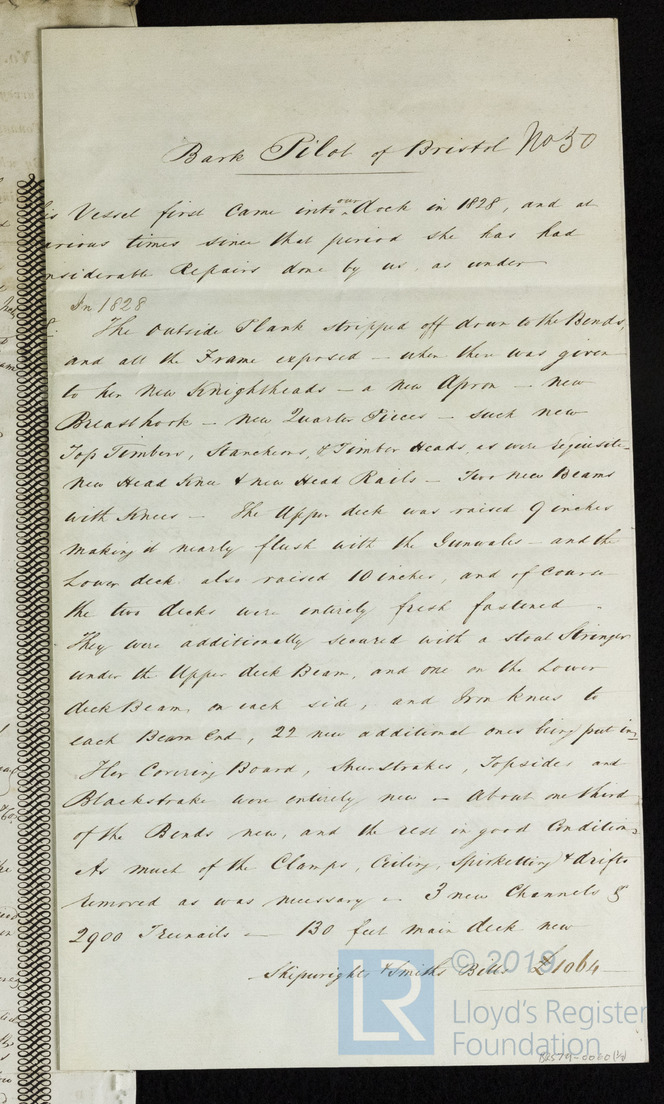 Bark Pilot of Bristol No 50
is Vessel first Came into our Dock in 1828, and at
arious times since that period she has had
nsiderable Repairs done by us, as under
In 1828
The outside Plank stripped off down to the Bends,
and all the Frame exposed – when there was given
to her new Knightheads – a new Apron – new
Breasthook – new Quarter Pieces – such new
Top Timbers, Stancheons, & Timber Heads, as were requisite
new Head Knee & new Head Rails – Two new Beams
with Knees – The Upper deck was raised 9 inches
making it nearly flush with the Gunwales – and the
Lower deck also raised 10 inches, and of course
the two decks were entirely fresh fastened –
They were additionally secured with a stout Stringer
under the Upper deck Beam, and one on the Lower
deck Beam, on each side, and Iron knees to
each Beam End, 22 new additional ones being put in
Her Covering Board, Sheerstrakes, Topsides and
Blackstrake were entirely new – About one third
of the Bends new, and the rest in good Condition
As much of the Clamps, Ceiling, Spirketting & drifts
removed as was necessary – 3 new Channels &
2900 Treenails – 130 feet main deck new
Shipwrights & Smiths Bills £1064
© 2019
LR
Lloyd's Register
Foundation